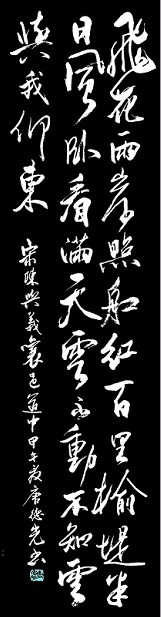 飛花兩岸照船紅百里榆堤半
日風卧看滿天雲不動不知雲
與我俱東
宋陳與義襄邑道中甲午 書